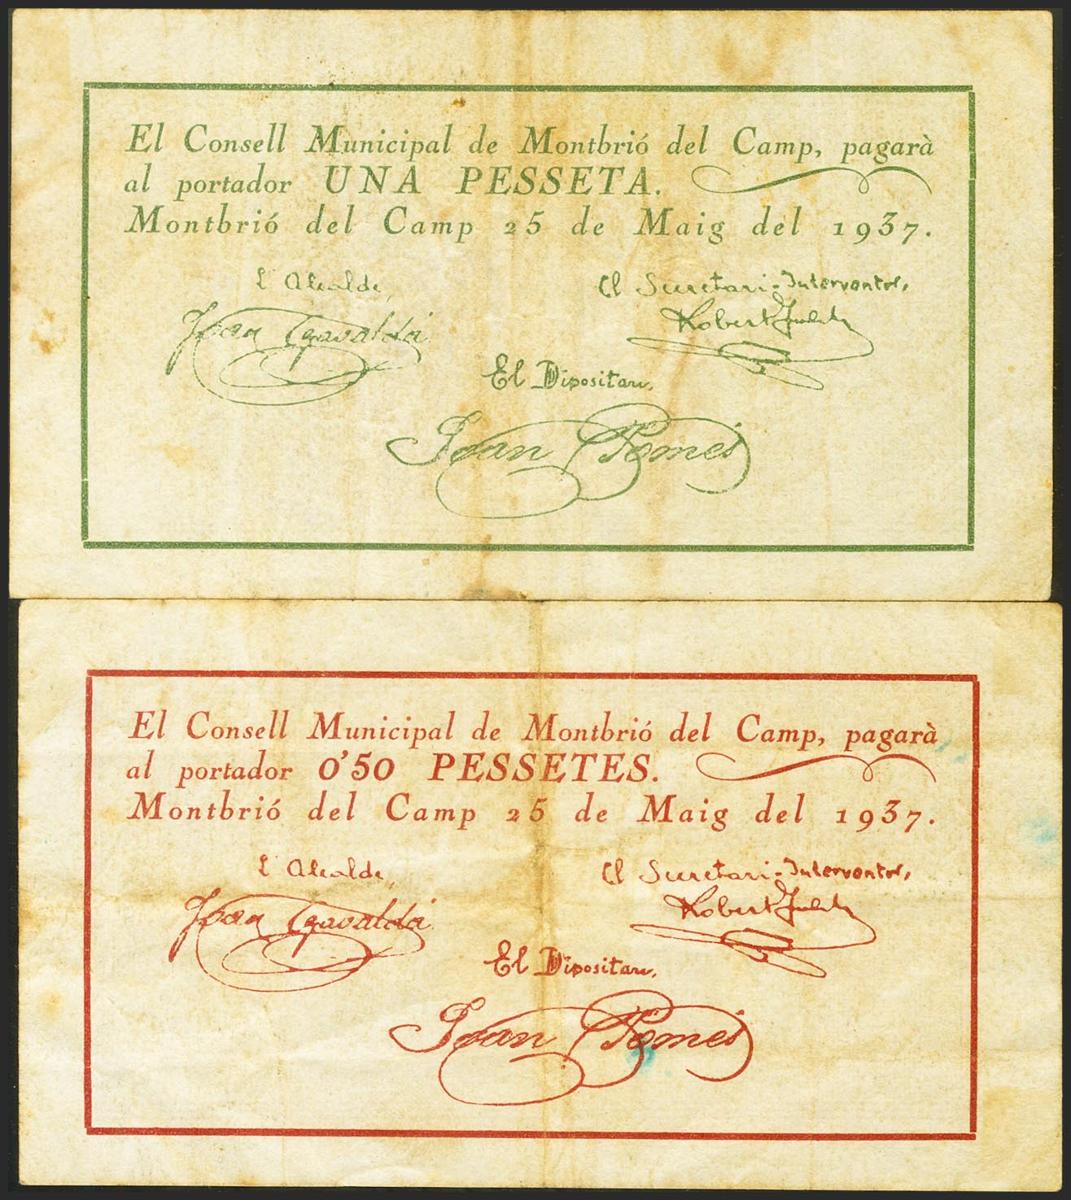 El Consell Municipal de Montbrió del Camp, pagarà
al portador UNA PESSETA.
Montbrió del Camp 25 de Maig del 1937.
L'Alcalde,
El Secretari-Interventor,
Joan
Robert
El Dipositari,
Joan Pomés
El Consell Municipal de Montbrió del Camp, pagarà
al portador 0'50 PESSETES.
Montbrió del Camp 25 de Maig del 1937.
L'Alcalde,
El Secretari-Interventor,
Joan
Robert
El Dipositari,
Joan Pomés